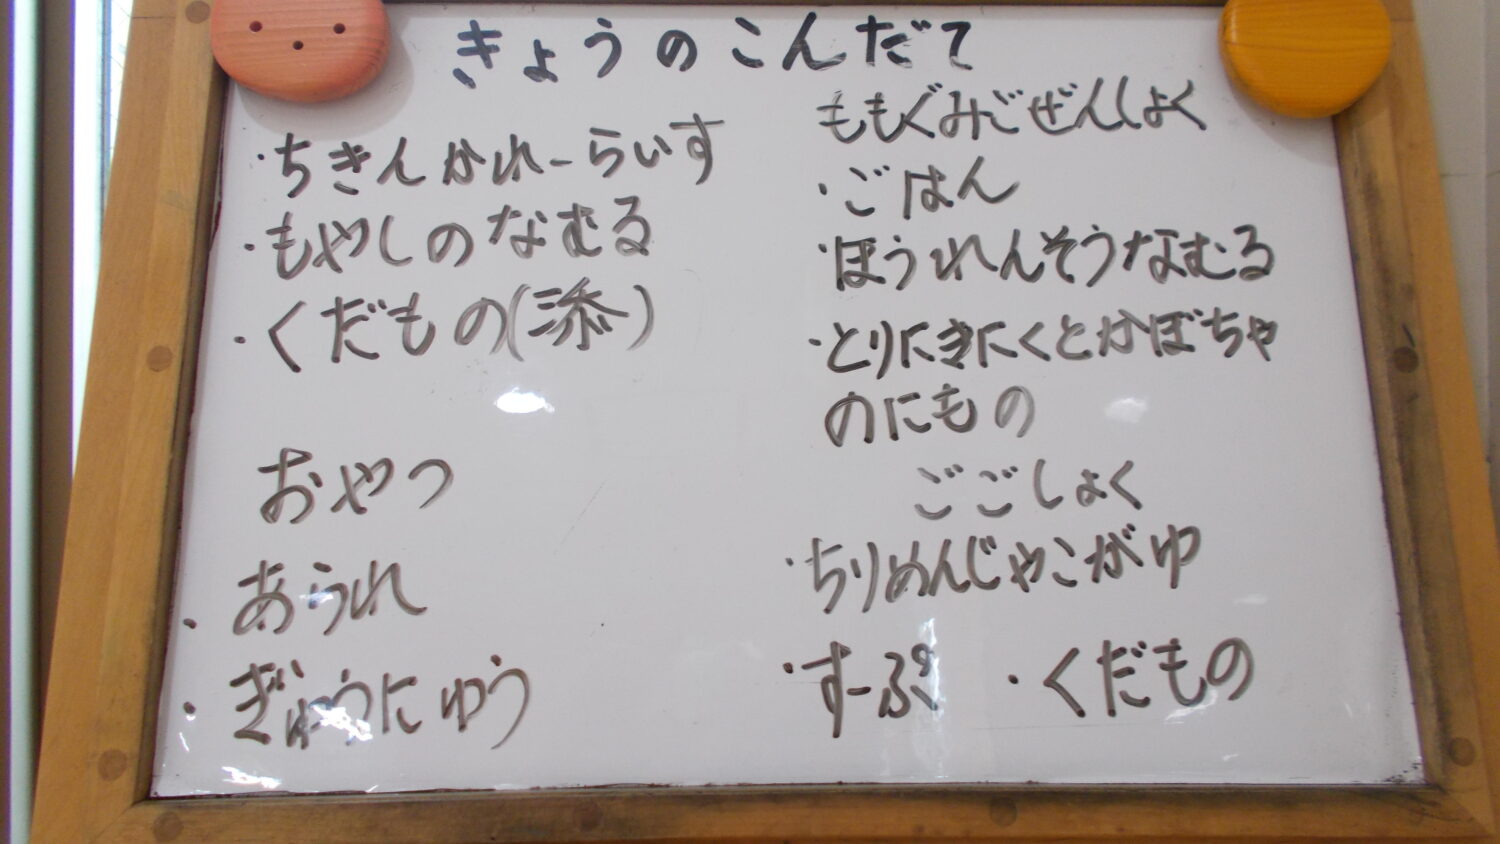 きょうのこんだて
・ちきんかれーらいす
・もやしのなむる
・くだもの(添)
おやつ
・あられ
・ぎゅうにゅう
ももぐみごぜんしょく
・ごはん
・ほうれんそうなむる
・とりにきにくとかぼちゃ
のにもの
ごごしょく
・ちりめんじゃこがゆ
・すーぷ ・くだもの